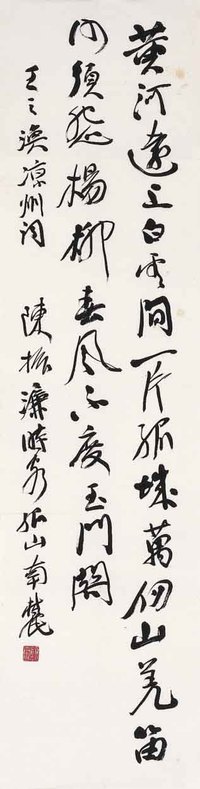 黄河遠上白雲間一片孤城萬仞山羌笛
何須怨楊柳春風不度玉門關
王之渙凉州詞 陳振濂時客孤山南麓